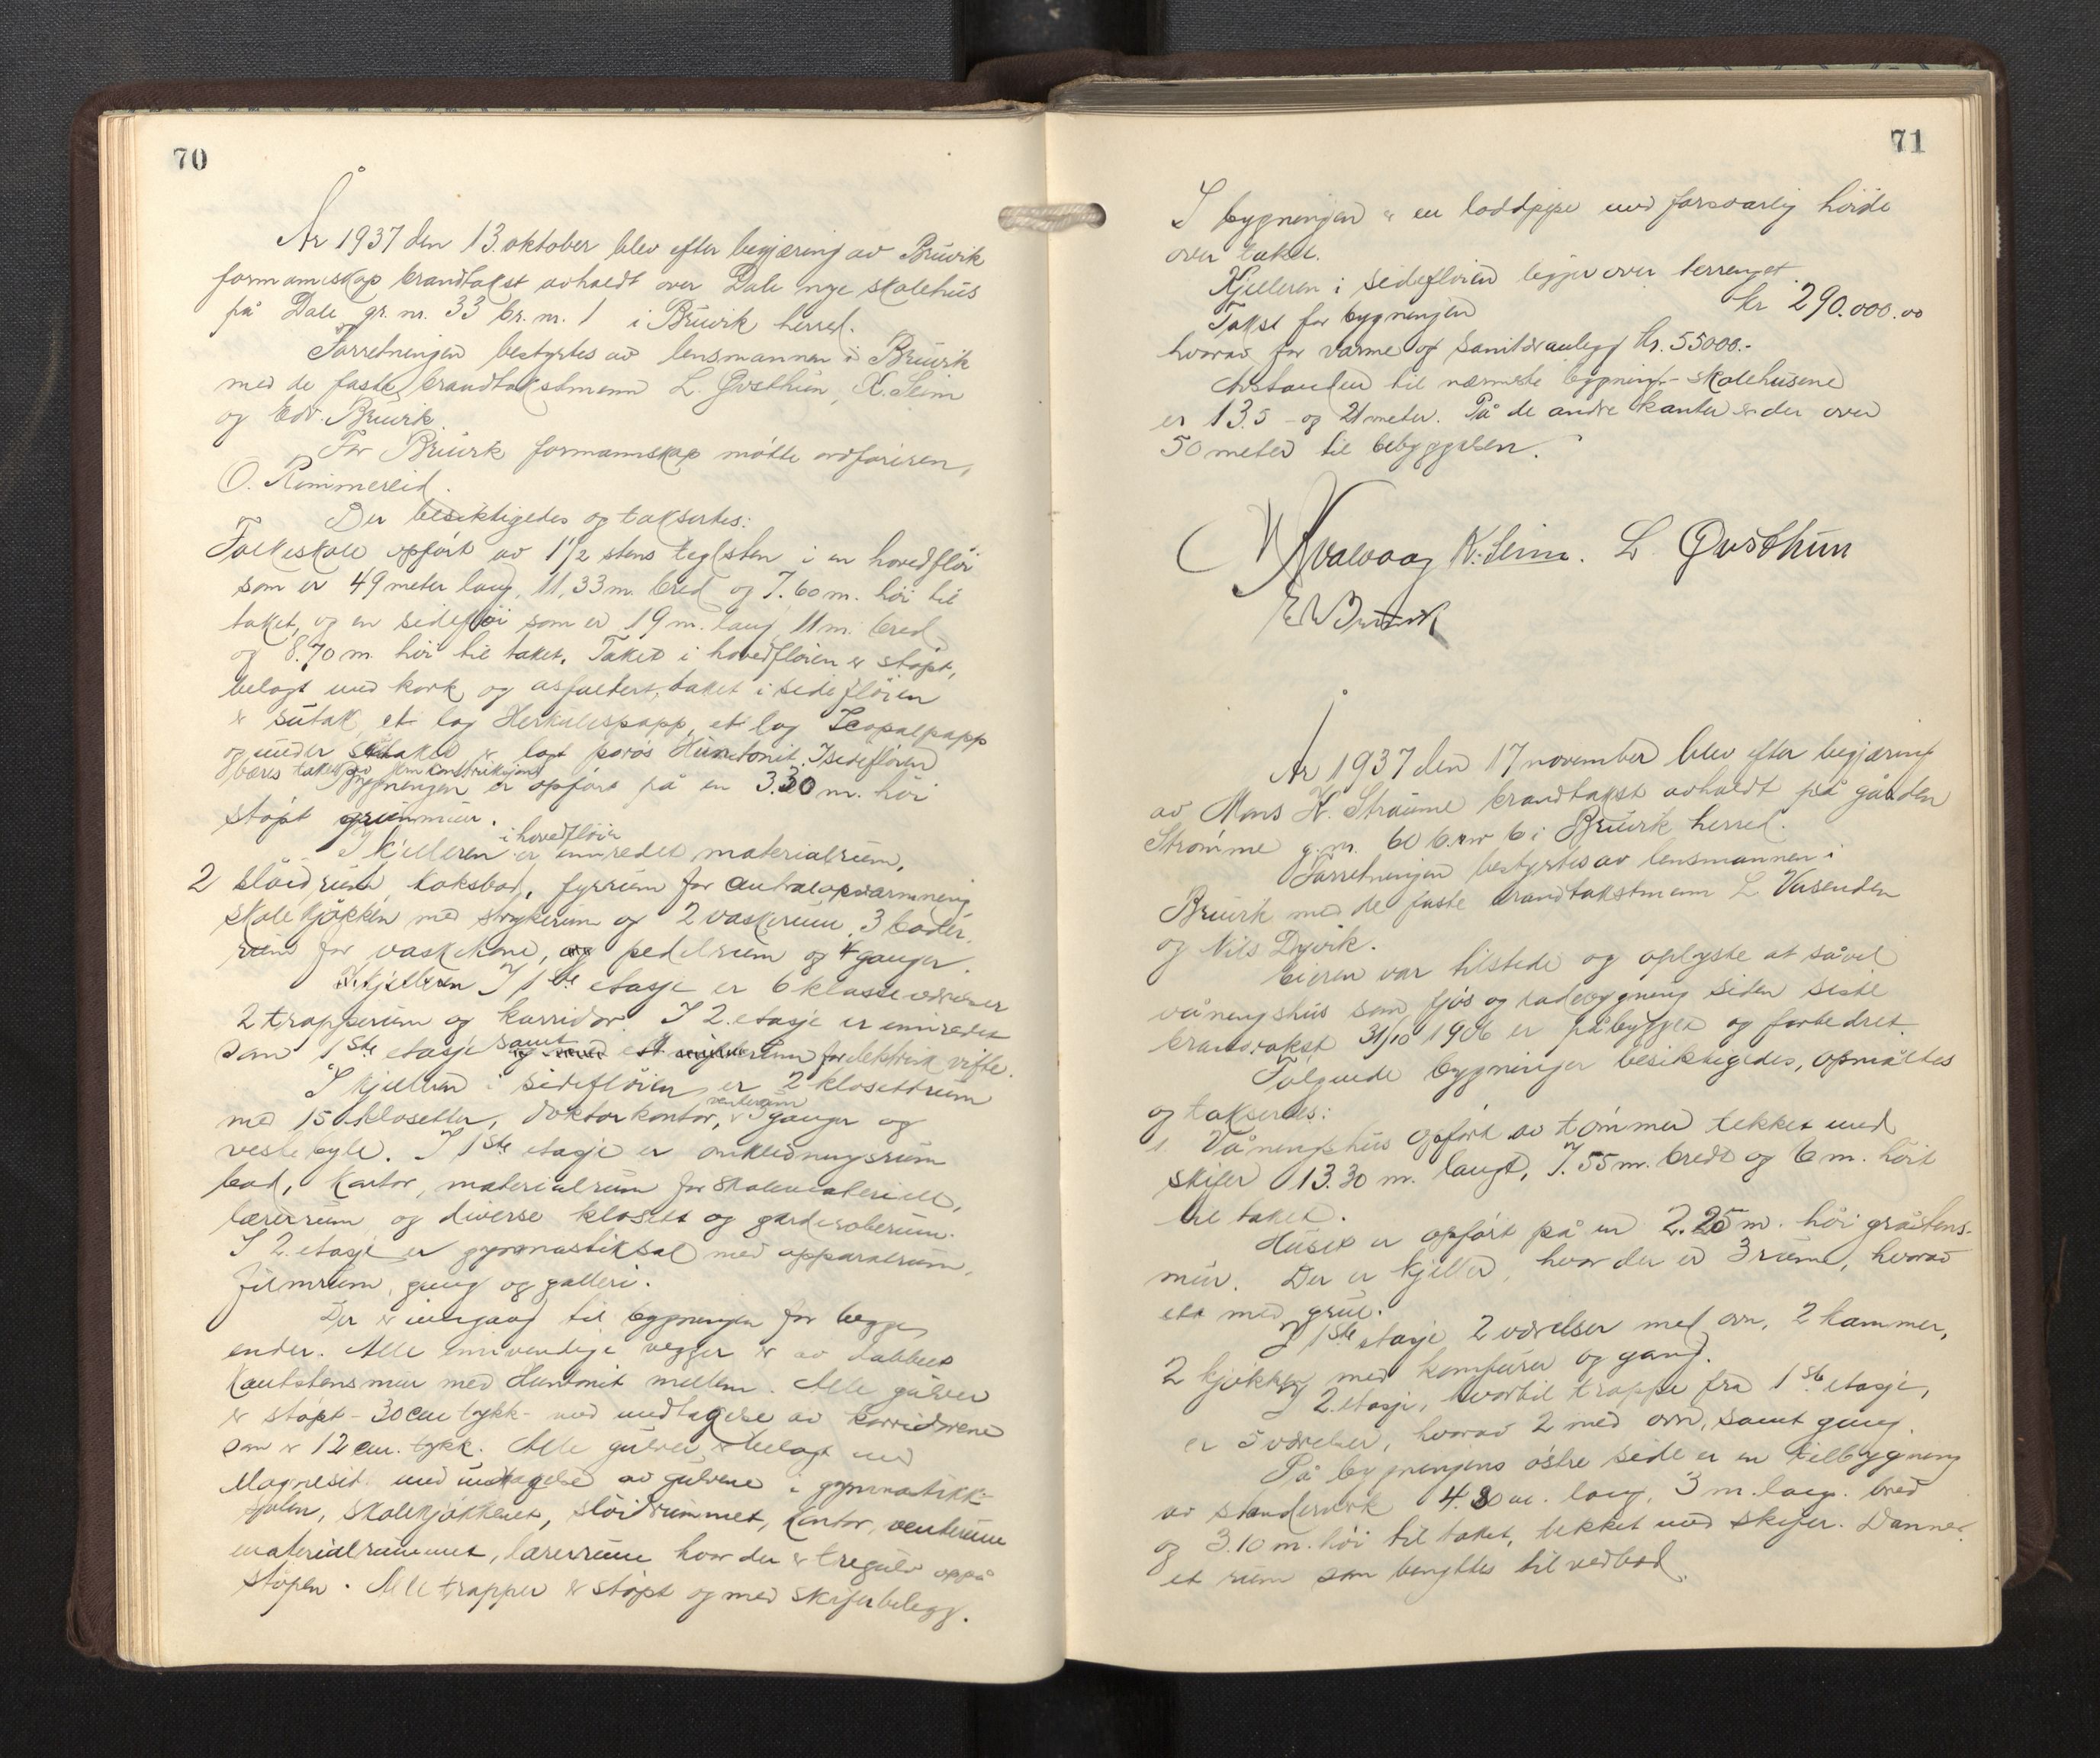 70
År 1937 den 13. oktober blev efter begjæring av Bruvik
formannskap brandtakst avholdt over Dale nye skolehus
på Dale gr. nr. 33 br. nr. 1 i Bruvik herred.
Forretningen bestyrtes av lensmannen i Bruvik
med de faste brandtakstmenn L. Gusthun, K. Seim
og Edv. Bruvik.
For Bruvik formannskap møtte ordføreren,
O. Rimmereid.
Der besiktigedes og taksertes:
Folkeskole opført av 1 1/2 stens teglsten i en hovedfløi
som er 49 meter lang, 11,33 m. bred og 7.60 m. høi til
taket, og en sidefløi som er 19 m. lang 11 m. bred
og 8.70 m. høi til taket. Taket i hovedfløien er støpt,
belagt med kork og asfaltert, taket i sidefløien
er sutak, et lag Herkulespapp, et lag Icopalpapp
og under sutaket er lagt porøs Huntonit. I sidefløien
bæres taket av jernkonstruksjon
Bygningen er opført på en 3.30 m. høi
støpt grunnmur.
I kjelleren i hovedfløia er innredet materialrum,
2 sløidrum koksbod, fyrrum for centralopvarmning
skolekjøkken med strykerum og 2 vaskerum, 3 bader,
rum for vaskekone, og pedelrum og 4 ganger.
I kjelleren I 1ste etasje er 6 klasseværelser
2 trapperum og korridor. I 2. etasje er innredet
som 1ste etasje samt et rum for elektrisk vifte.
I kjelleren i sidefløien er 2 klosettrum
med 15 klosetter, doktorkontor, venterum, ganger og
vestibyle. I 1ste etasje er omkledningsrum
bad, kontor, materialrum for skolemateriell,
lærerrum og diverse klosett og garderoberum.
I 2. etasje er gymnastiksal med apparatrum,
filmrum, gang og galleri.
Der er inngang til bygningen for begge
ender. Alle innvendige vegger er av dobbelt
kantstensmur med Huntonit mellem. Alle gulver
er støpt - 30 cm tykk - med undtagelse av korridorene
som er 12 cm. tykk. Alle gulver er belagt med
Magnesit med undtagelse av gulvene i gymnastikk-
salen, skolekjøkkenet, sløidrummet, kontor, venterum
materialrummet, lærerrum hvor der er tregulv oppå
støpen. Alle trapper er støpt og med skiferbelegg.
71
I bygningen er en loddpipe med forsvarlig høide
over taket.
Kjelleren i sidefløien ligger over terrenget.
Takst for bygningen kr 290.000.00
hvorav for varme og sanitæranlegg kr. 55000.-
Avstanden til nærmeste bygning - skolehusene
er 13.5 - og 21 meter. På de andre kanter er der over
50 meter til bebyggelsen.
Kvalvaag K. Seim. L. Gusthun
E Bruvik
År 1937 den 17 november blev efter begjæring
av Mons N. Straume brandtakst avholdt på gården
Strømme g. nr. 60 b. nr 6 i Bruvik herred.
Forretningen bestyrtes av lensmannen i
Bruvik med de faste brandtakstmenn L Vasenden
og Nils Dyvik.
Eieren var tilstede og oplyste at såvel
våningshus som fjøs og ladebygning siden siste
brandtakst 31/10 1906 er påbygget og forbedret.
Følgende bygninger besiktigedes, opmåltes
og taksertes:
1. Våningshus opført av tømmer tekket med
skifer 13.30 m. langt, 7.55 m. bredt og 6 m. høit
til taket.
Huset er opført på en 2.25 m. høi gråstens-
mur. Der er kjeller, hvor der er 3 rum, hvorav
ett med grue.
I 1ste etasje 2 værelser med ovn, 2 kammer,
2 kjøkken med komfurer og gang.
I 2. etasje, hvortil trappe fra 1ste etasje,
er 5 værelser, hvorav 2 med ovn, samt gang.
På bygningens østre side er en tilbygning
av stenderverk 4.80 m. lang, 3 m. lang. bred
og 3.10 m. høi til taket, tekket med skifer. Danner
et rum som benyttes til vedbod.